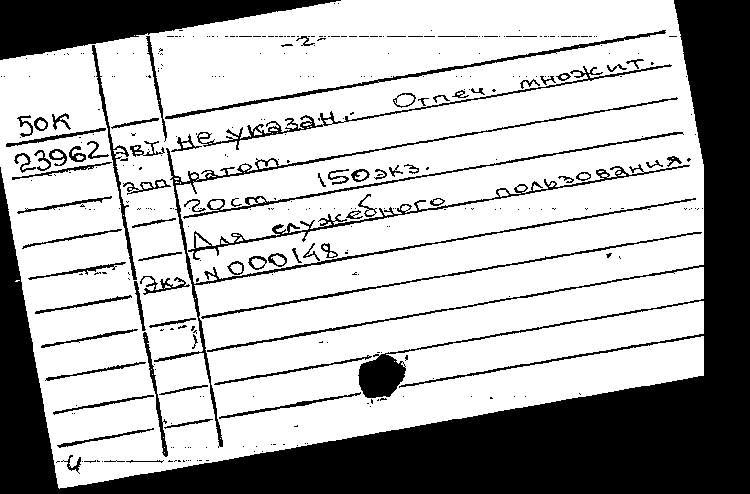 -2-
50К
23962 авт. не указан.- Отпеч. множит.
аппаратом.
20ст. 150экз.
Для служебного пользования.
Экз. N 000148.